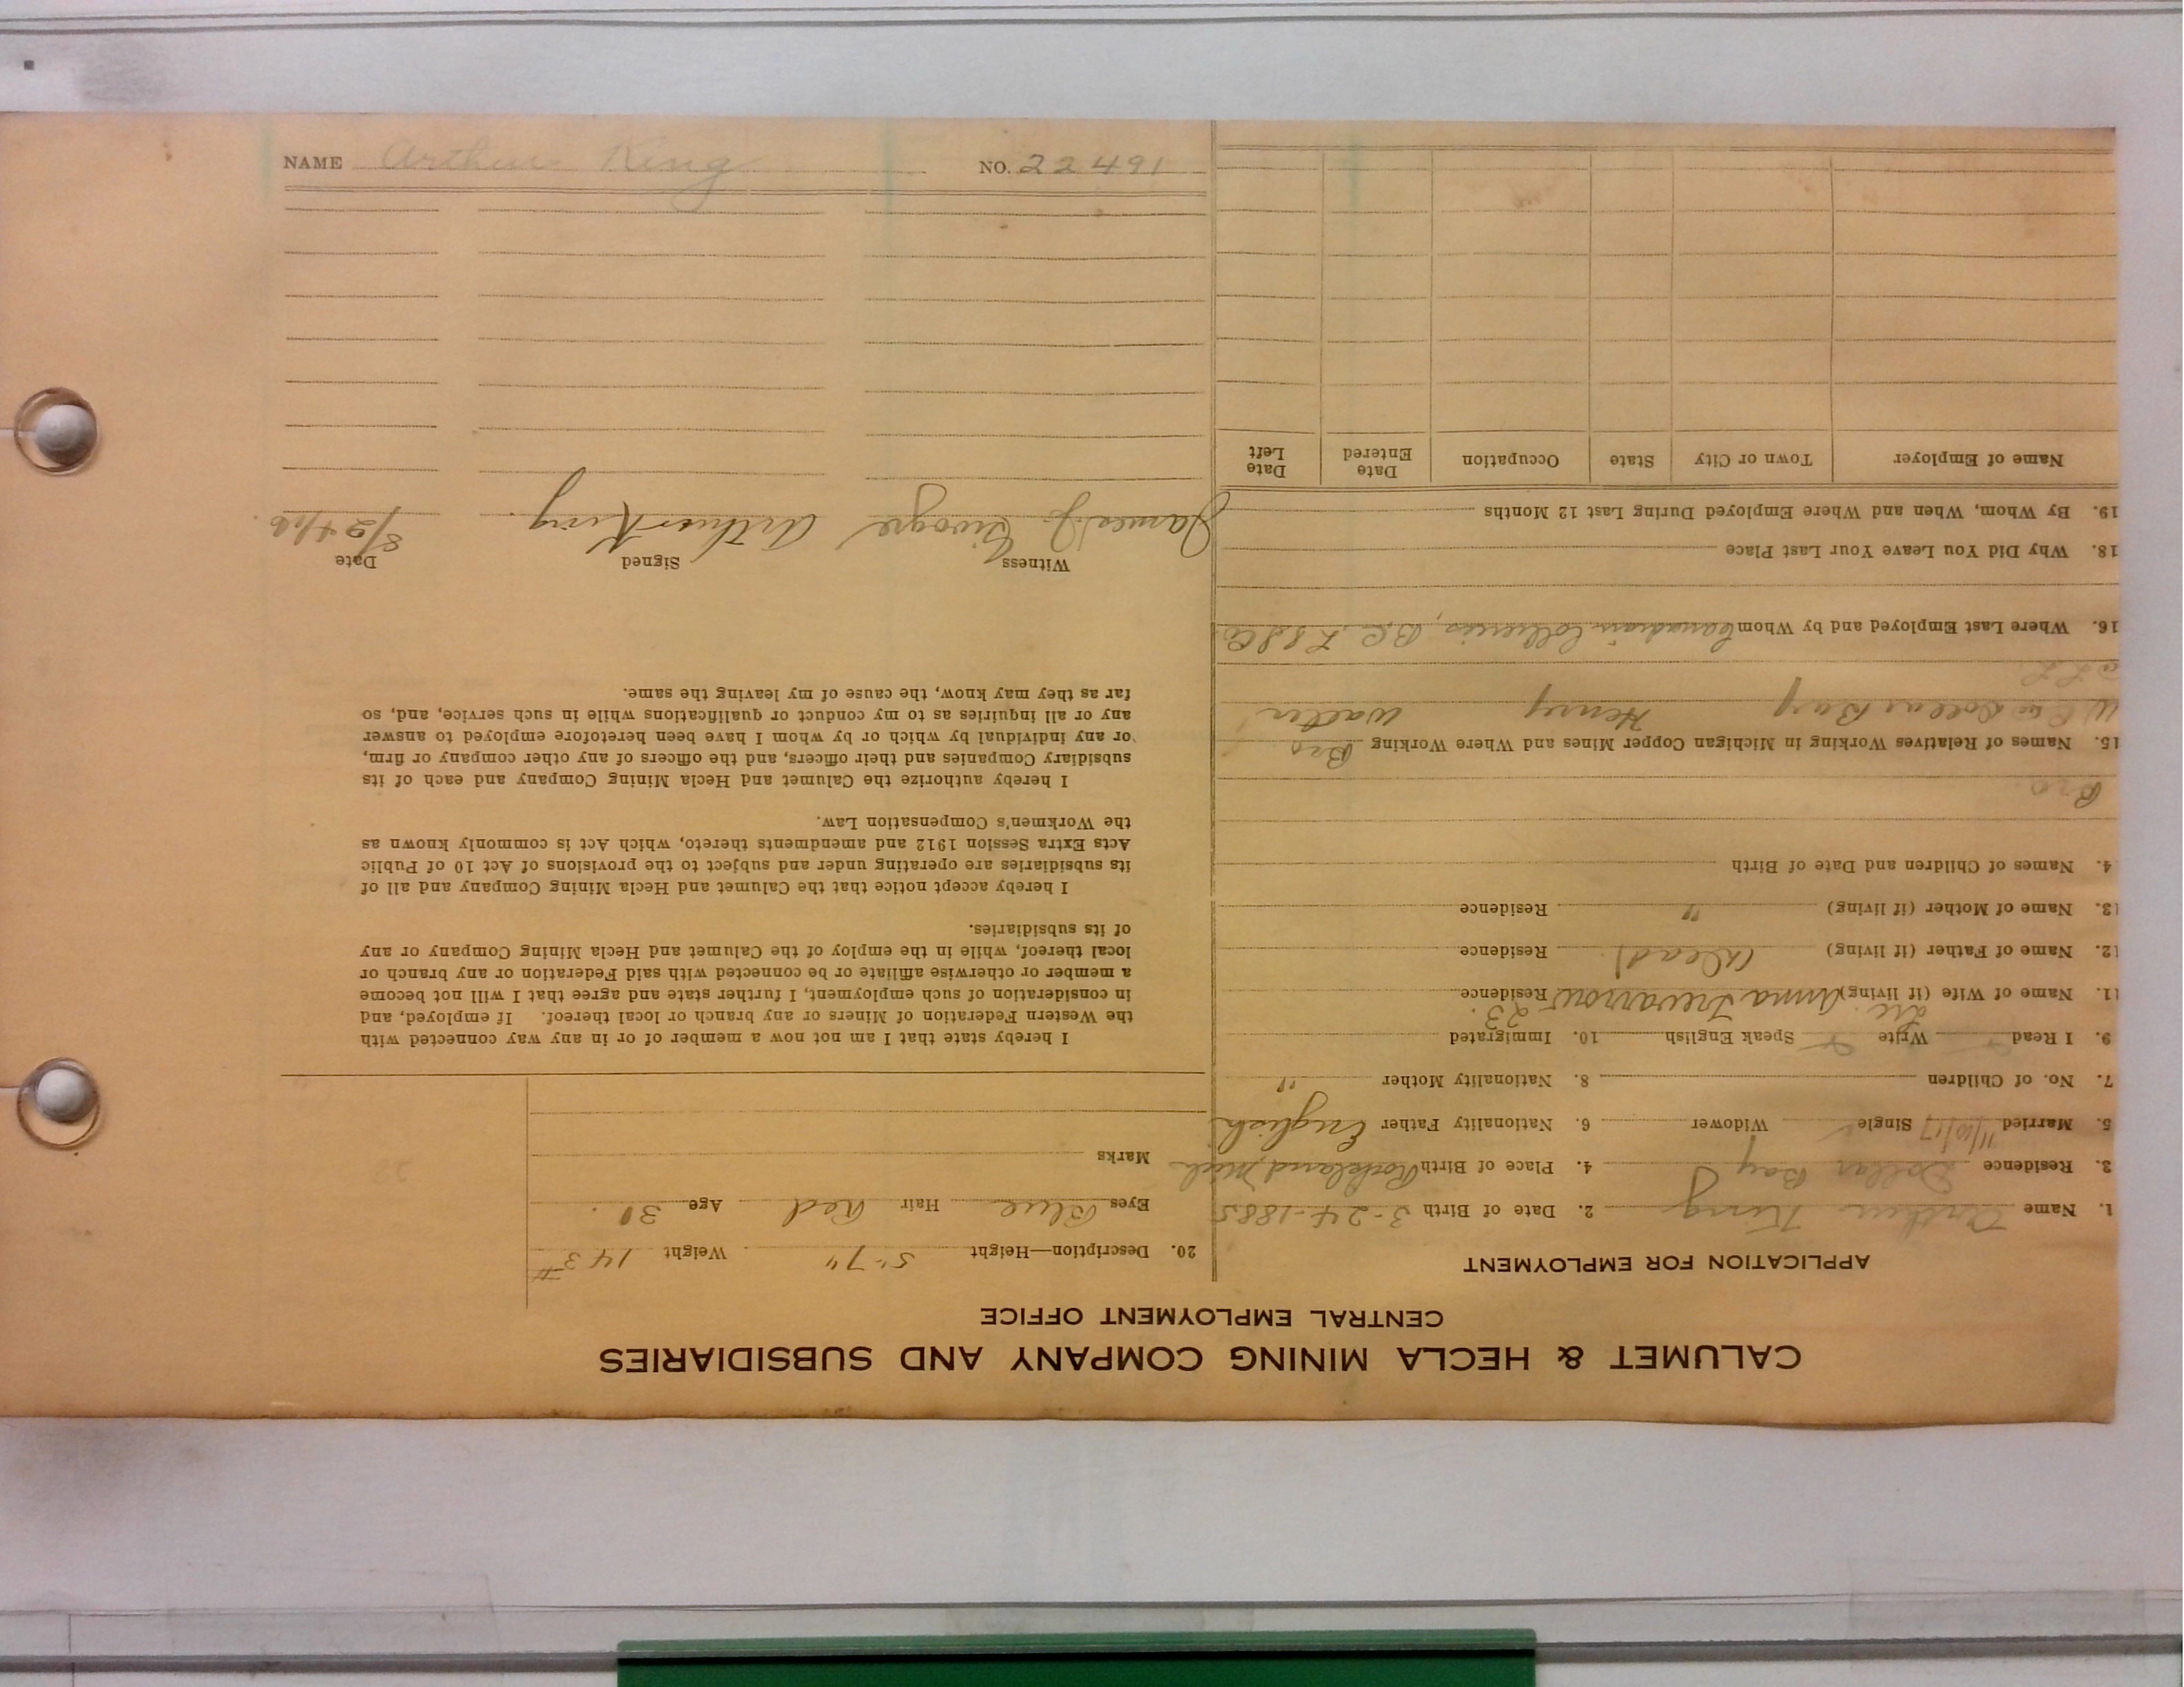 CALUMET & HECLA MINING COMPANY AND SUBSIDIARIES
CENTRAL EMPLOYMENT OFFICE
APPLICATION FOR EMPLOYMENT
1. Name Arthur King 2. Date of Birth 3-24-1885
3. Residence Dollar Bay 4. Place of Birth Rockland, Mich
5. Married 11/10/17 Single Widower 6. Nationality Father English
7. No. of Children 8. Nationality Mother "
9. I Read Write Speak English 10. Immigrated
11. Name of Wife (if living) Anna Trevarrow Residence
12. Name of Father (if living) (Dead) Residence
13. Name of Mother (if living) " Residence
4. Names of Children and Date of Birth
Bro.
15. Names of Relatives Working in Michigan Copper Mines and Where Working Bro
Dollar Bay Henry Walter
16. Where Last Employed and by Whom Canadian Collieries, B.C.
18. Why Did You Leave Your Last Place
19. By Whom, When and Where Employed During Last 12 Months
Name of Employer Town or City State Occupation Date Entered Date Left
20. Description—Height 5'-7" Weight 143#
Eyes Blue Hair Red Age 30.
Marks
I hereby state that I am not now a member of or in any way connected with
the Western Federation of Miners or any branch or local thereof. If employed, and
in consideration of such employment, I further state and agree that I will not become
a member or otherwise affiliate or be connected with said Federation or any branch or
local thereof, while in the employ of the Calumet and Hecla Mining Company or any
of its subsidiaries.
I hereby accept notice that the Calumet and Hecla Mining Company and all of
its subsidiaries are operating under and subject to the provisions of Act 10 of Public
Acts Extra Session 1912 and amendments thereto, which Act is commonly known as
the Workmen's Compensation Law.
I hereby authorize the Calumet and Hecla Mining Company and each of its
subsidiary Companies and their officers, and the officers of any other company or firm,
or any individual by which or by whom I have been heretofore employed to answer
any or all inquiries as to my conduct or qualifications while in such service, and, so
far as they may know, the cause of my leaving the same.
Witness Signed Date
James J. Arthur King. 8/24/16.
NAME Arthur King NO. 22491